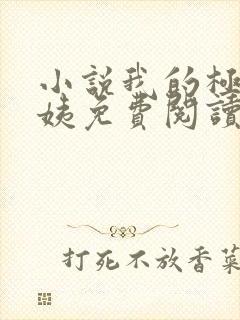 小説我的極
姨免費閱讀
打死不放香菜